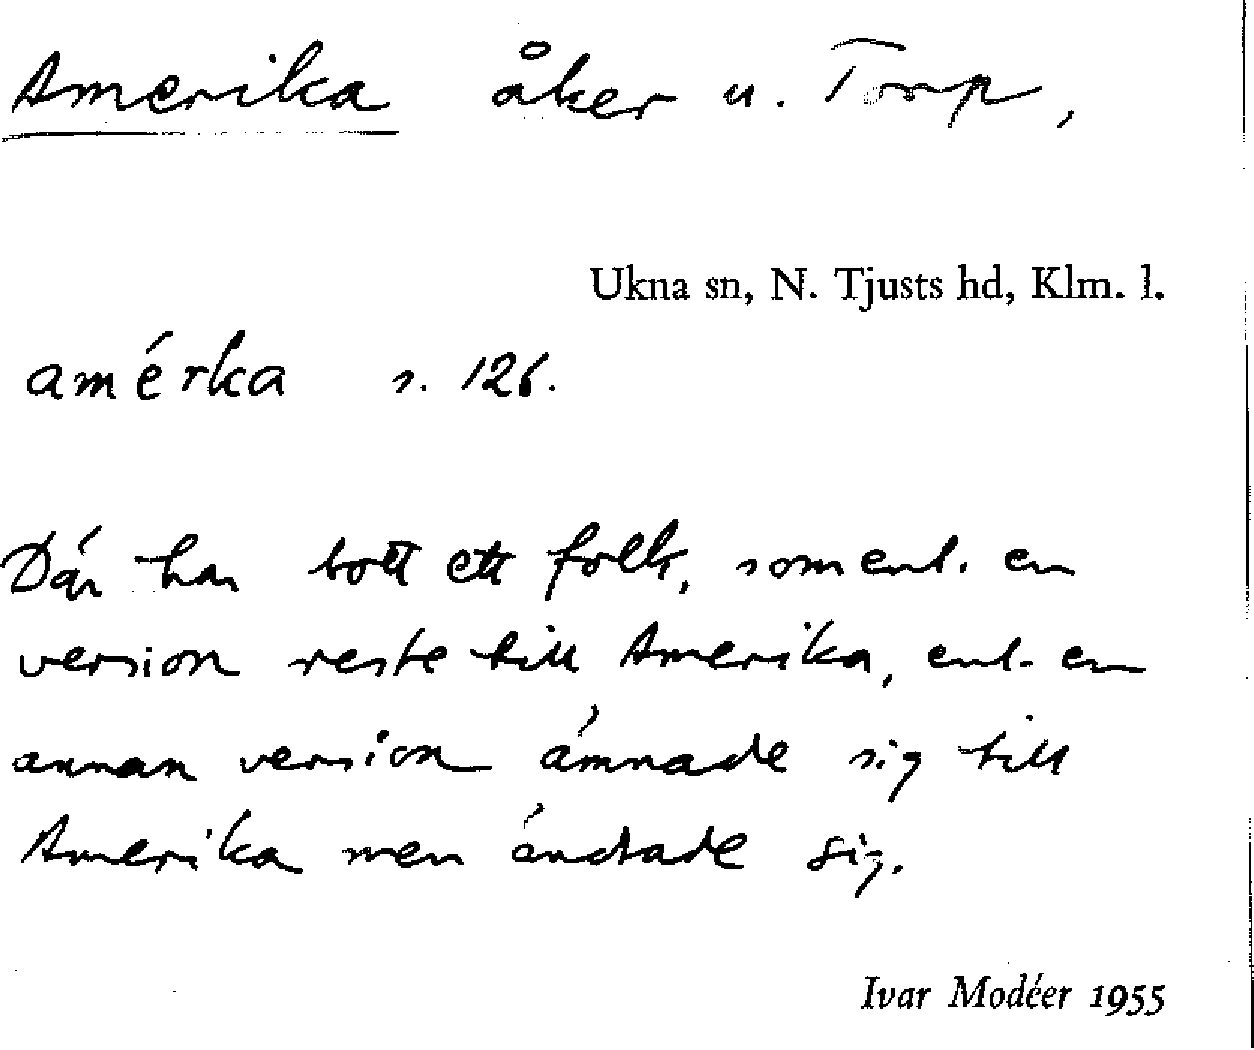 Amerika åker u. Torp,
Ukna sn, N. Tjusts hd, Klm. l.
amérka s. 126.
Där har bott ett folk, som enl. en
version reste till Amerika, enl. en
annan version ämnade sig till
Amerika men ändrade sig.
Ivar Modéer 1955